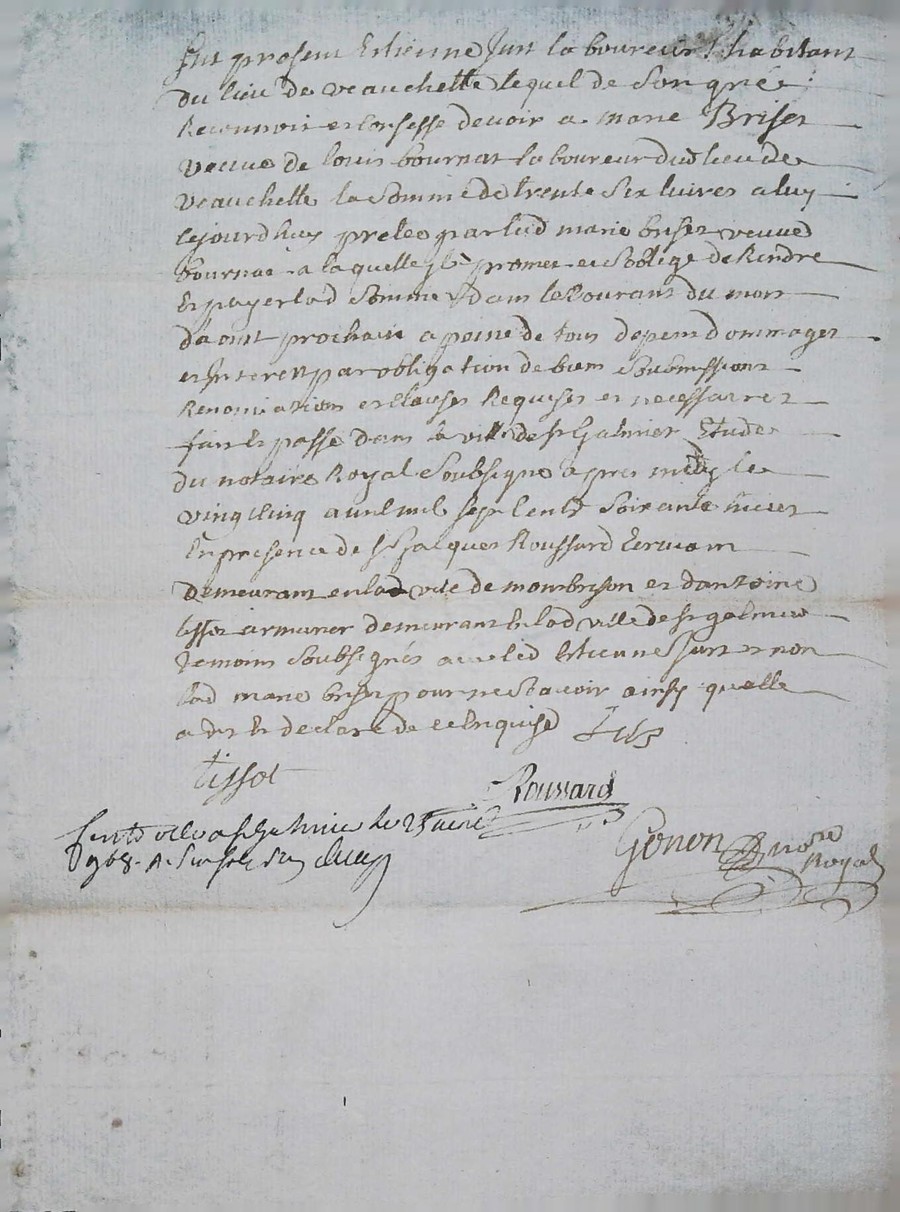 fut present Estienne Just laboureur habitant
du lieu de veauchette lequel de son gré
Reconnoit et confesse devoir a marie Briset
veuve de louis bournat laboureur dud lieu de
veauchette la somme de trente six livres a luy
cejourdhuy pretée par lad marie briset veuve
bournat a laquelle il promet et soblige de Rendre
Et payer lad somme dans le courant du mois
daout prochain a peine de tous depens dommages
et Interets par obligation de biens soubmissions
Renonciations et clauses Requises et necessaires
fait et passé dans la ville de st Galmier Etude
du notaire Royal soubsigné apres midy le
vingt cinq avril mil sept cents soixante huict
En presence de sr Jacques Roussard Ecrivain
demeurant en lad ville de montbrison et dantoine
tissot armurier demeurant En lad ville de st galmier
temoins soubsignés avec led Estienne Just et non
lad marie briset pour ne scavoir ainsy quelle
a dit Et declaré de ce Enquise Just
tissot
Roussard
Gonon nore
Royal
a st Galmier le 25 avril
1768